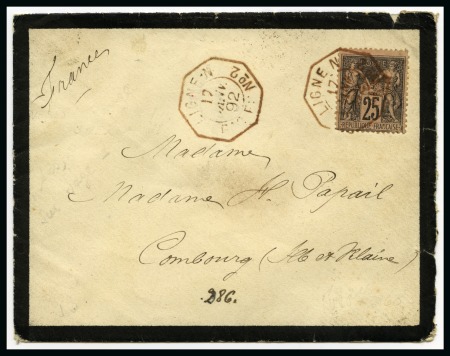 France
LIGNE N
Nº2
17
92
LIGNE N
17
25
REPUBLIQUE FRANCAISE
Madame
Madame H. Papail
Combourg (Ile et Vilaine)
286.